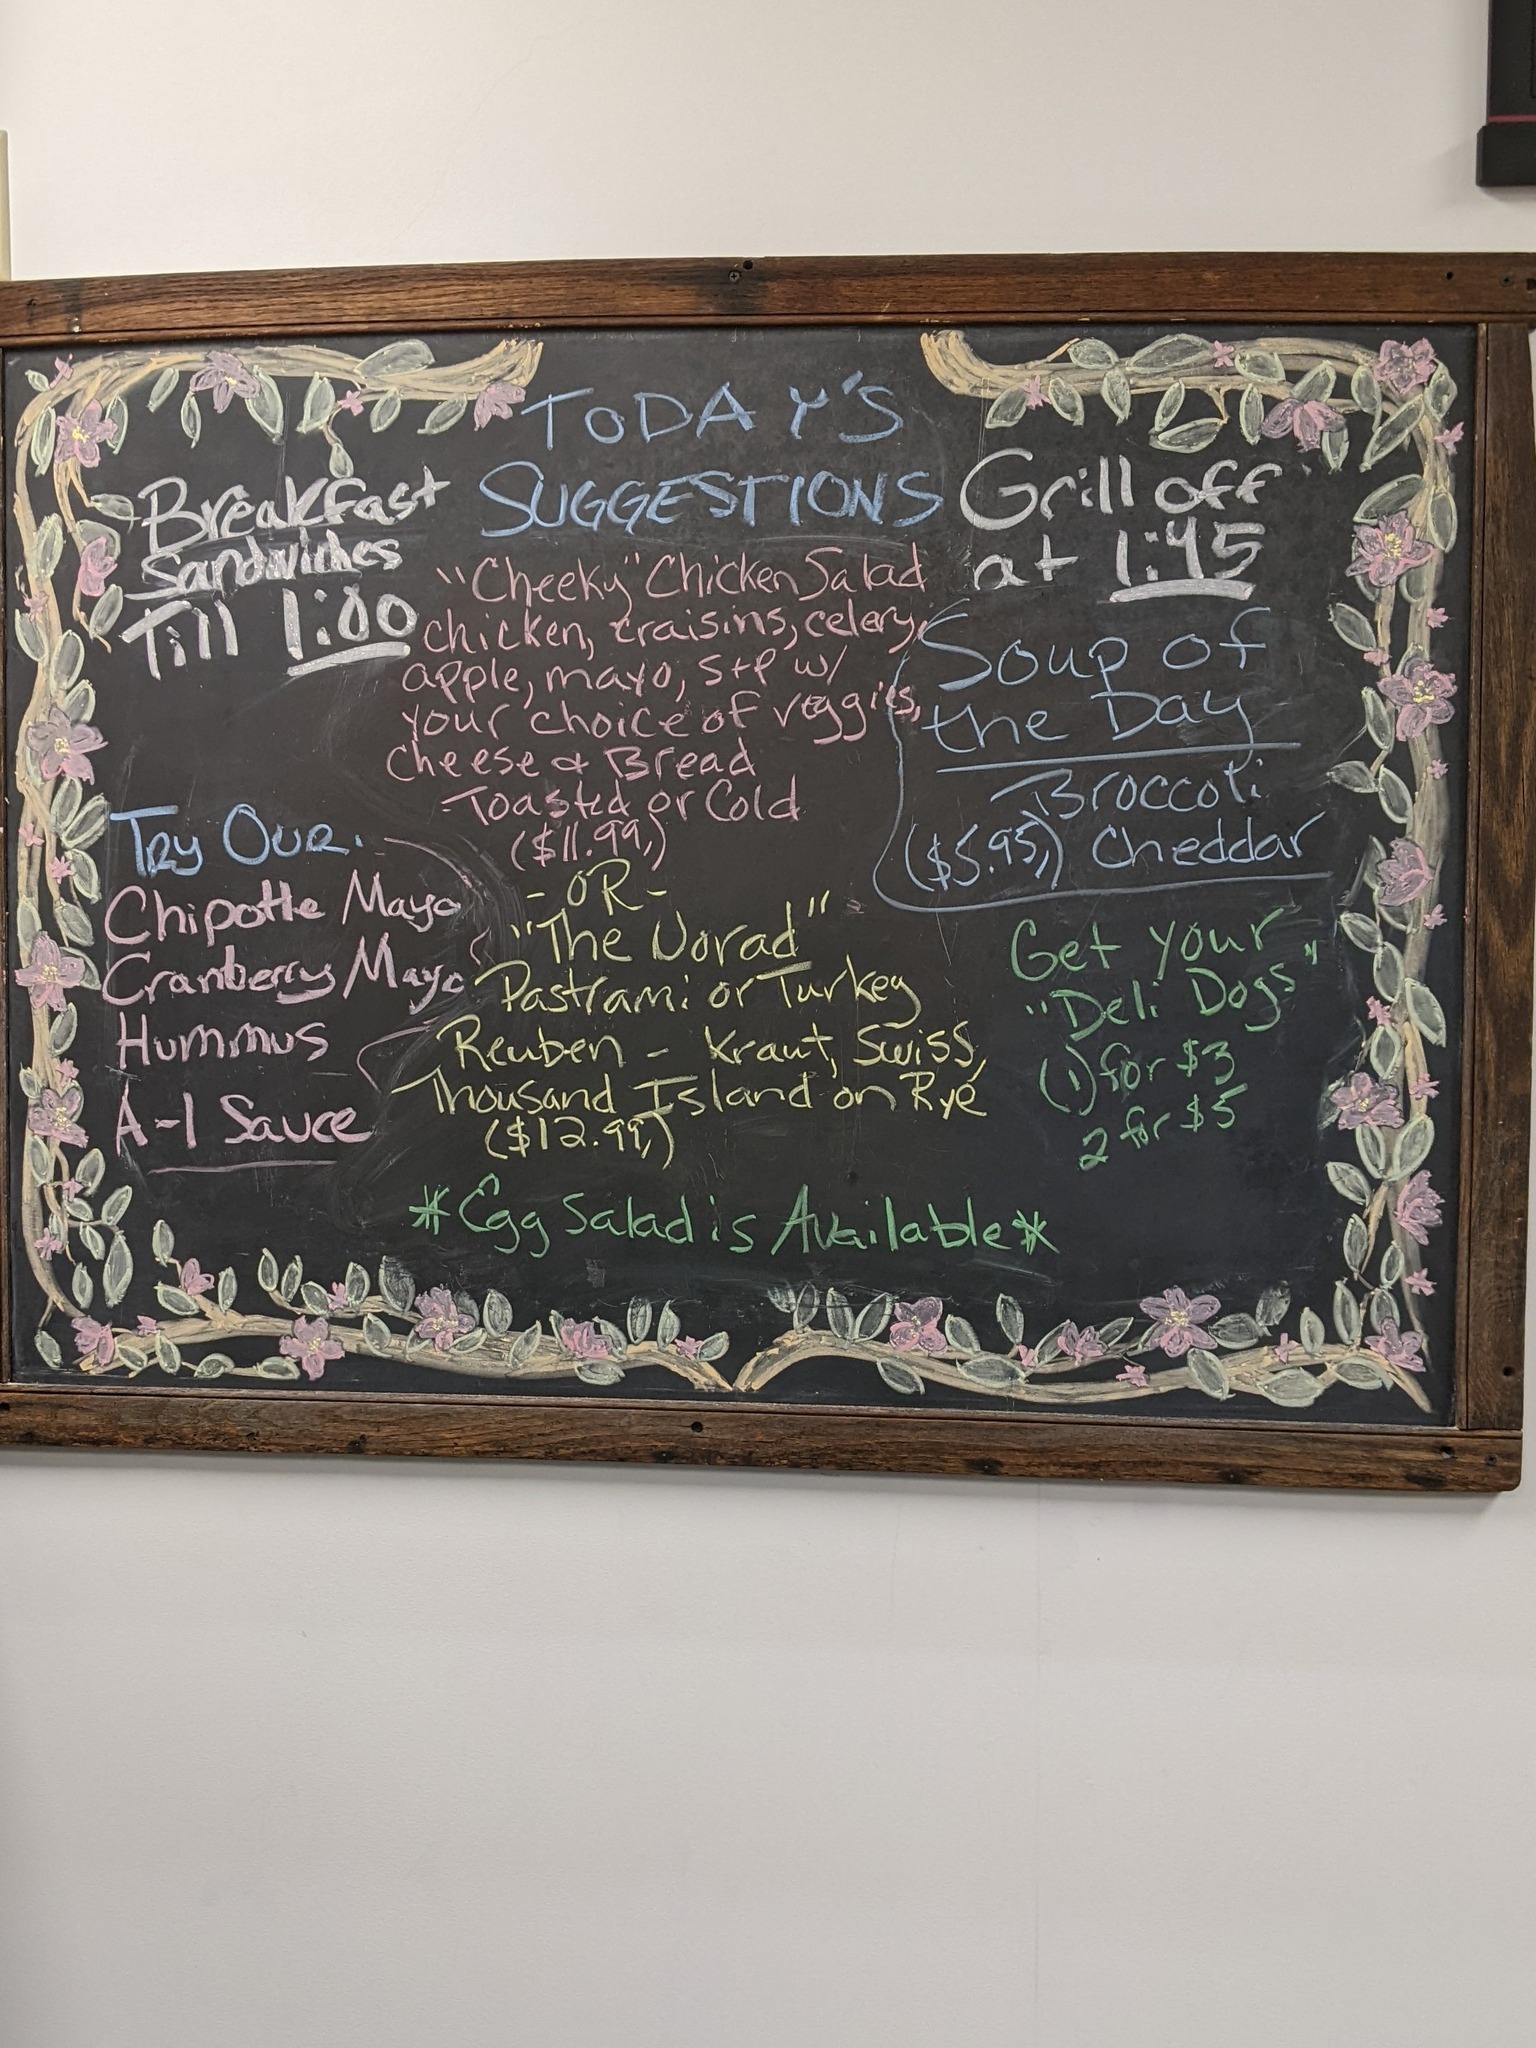 TODAY'S
SUGGESTIONS
Breakfast
Sandwiches
Till 1:00
Grill off
at 1:45
"Cheeky" Chicken Salad
chicken, craisins, celery,
apple, mayo, S+P w/
your choice of veggies,
cheese & Bread
Toasted or Cold
($11.99,)
-OR-
"The Norad"
Pastrami or Turkey
Reuben - Kraut, Swiss,
Thousand Island on Rye
($12.99,)
Soup of
the Day
Broccoli
($5.95,) Cheddar
TRY OUR.
Chipotle Mayo
Cranberry Mayo
Hummus
A-1 Sauce
Get your
"Deli Dogs"
(1) for $3
2 for $5
*Egg Salad is Available*